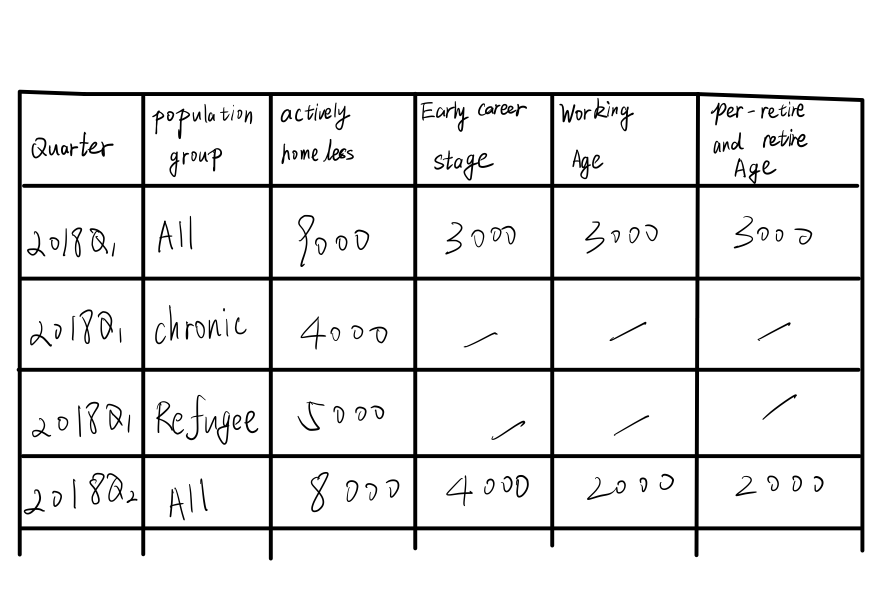 Quarter
population
group
actively
homeless
Early career
stage
Working
Age
per-retire
and retire
Age
2018Q1 All 9000 3000 3000 3000
2018Q1 chronic 4000 / / /
2018Q1 Refugee 5000 / / /
2018Q2 All 8000 4000 2000 2000